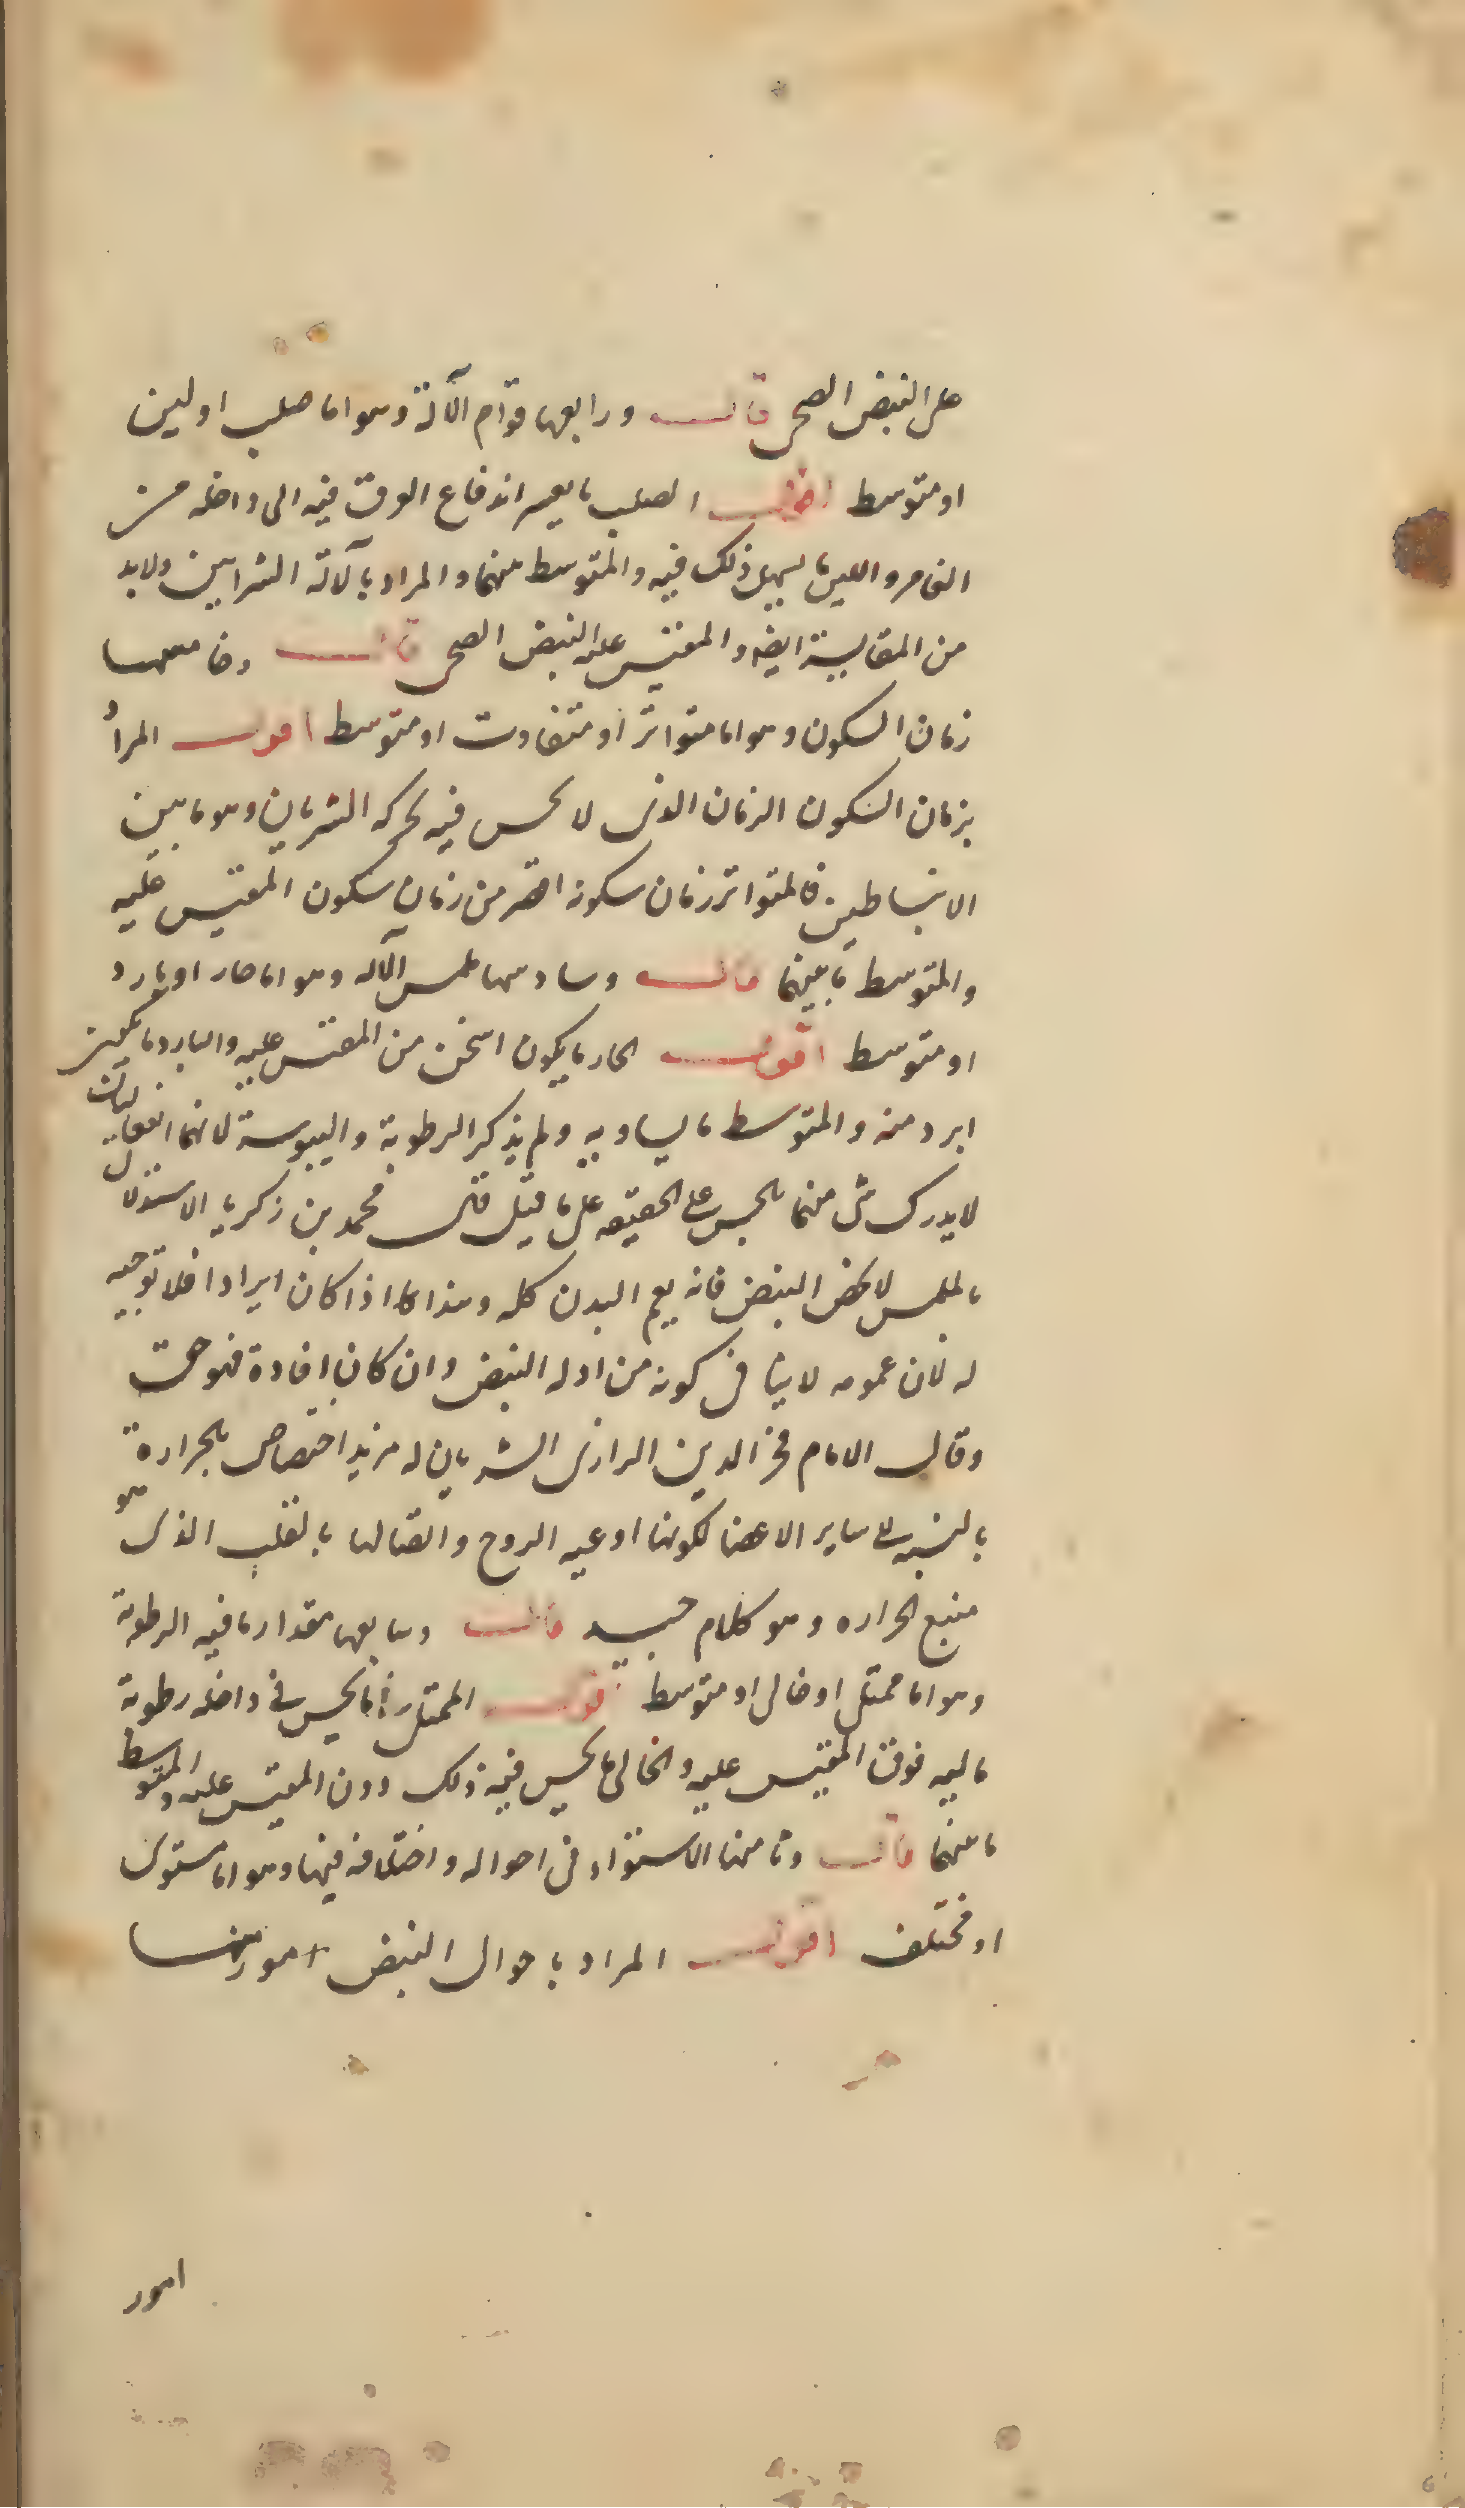 على النبض الصحى قال ورابعها قوام الآلة وهو اما صلب او لين
او متوسط اقول الصلب ما يعسر اندفاع العرق فيه الى داخله من
الغامر واللين ما يسهل ذلك فيه والمتوسط بينهما والمراد بالآلة الشرايين ولابد
من المقايسة ايضا والمقيس عليه النبض الصحى قال وخامسها
زمان السكون وهو اما متواتر او متفاوت او متوسط اقول المراد
بزمان السكون الزمان الذى لا يحس فيه بحركه الشريان وهو ما بين
الانبساطين فالمتواتر زمان سكونه اقصر من زمان سكون المقيس عليه
والمتوسط ما بينهما قال وسادسها ملمس الآله وهو اما حار او بارد
او متوسط اقول الحار ما يكون اسخن من المقيس عليه والبارد ما يكون
ابرد منه والمتوسط ما يساويه ولم يذكر الرطوبة واليبوسة لانهما انفعاليتان
لا يدرك شى منهما بالجس على الحقيقه على ما قيل قال محمد بن زكريا الاستدلال
بالملمس لا يخص النبض فانه يعم البدن كله وهذا كلام اذا كان ايرادا فلا توجيه
له لان عمومه لا ينافى كونه من ادله النبض وان كان افادة فهو حق
وقال الامام فخر الدين الرازى الشريان له مزيد اختصاص بالحرارة
بالنسبه الى ساير الاعضا لكونها اوعيه الروح واتصالها بالقلب الذى هو
منبع الحراره وهو كلام جيد قال وسابعها مقدار ما فيه الرطوبة
وهو اما ممتلى او خالى او متوسط اقول الممتلى ما يحس فى داخله رطوبة
ماليه فوق المقيس عليه والخالى ما يحس فيه ذلك دون المقيس عليه والمتوسط
ما بينهما قال وثامنها الاستواء فى احواله واختلافه فيها وهو اما مستوى
او مختلف اقول المراد باحوال النبض امور منها
امور